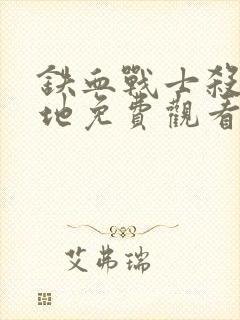 鉄血戰士殺
地免費觀看
艾弗瑞